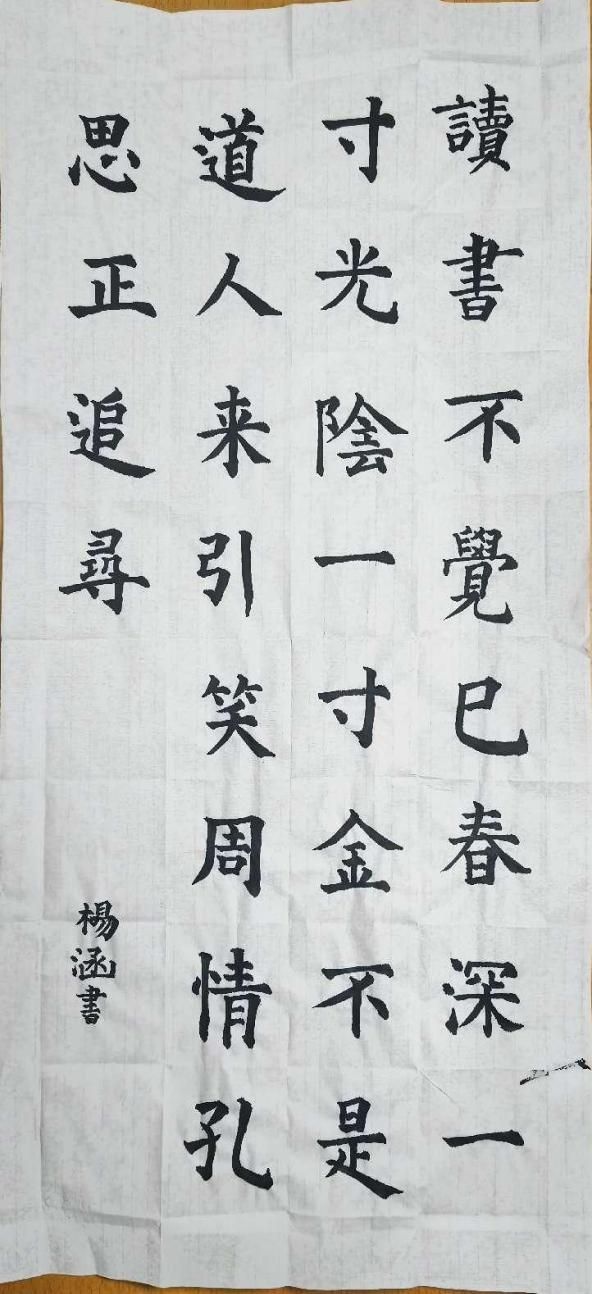 讀書不覺巳春深一
寸光陰一寸金不是
道人来引笑周情孔
思正追尋
楊涵書